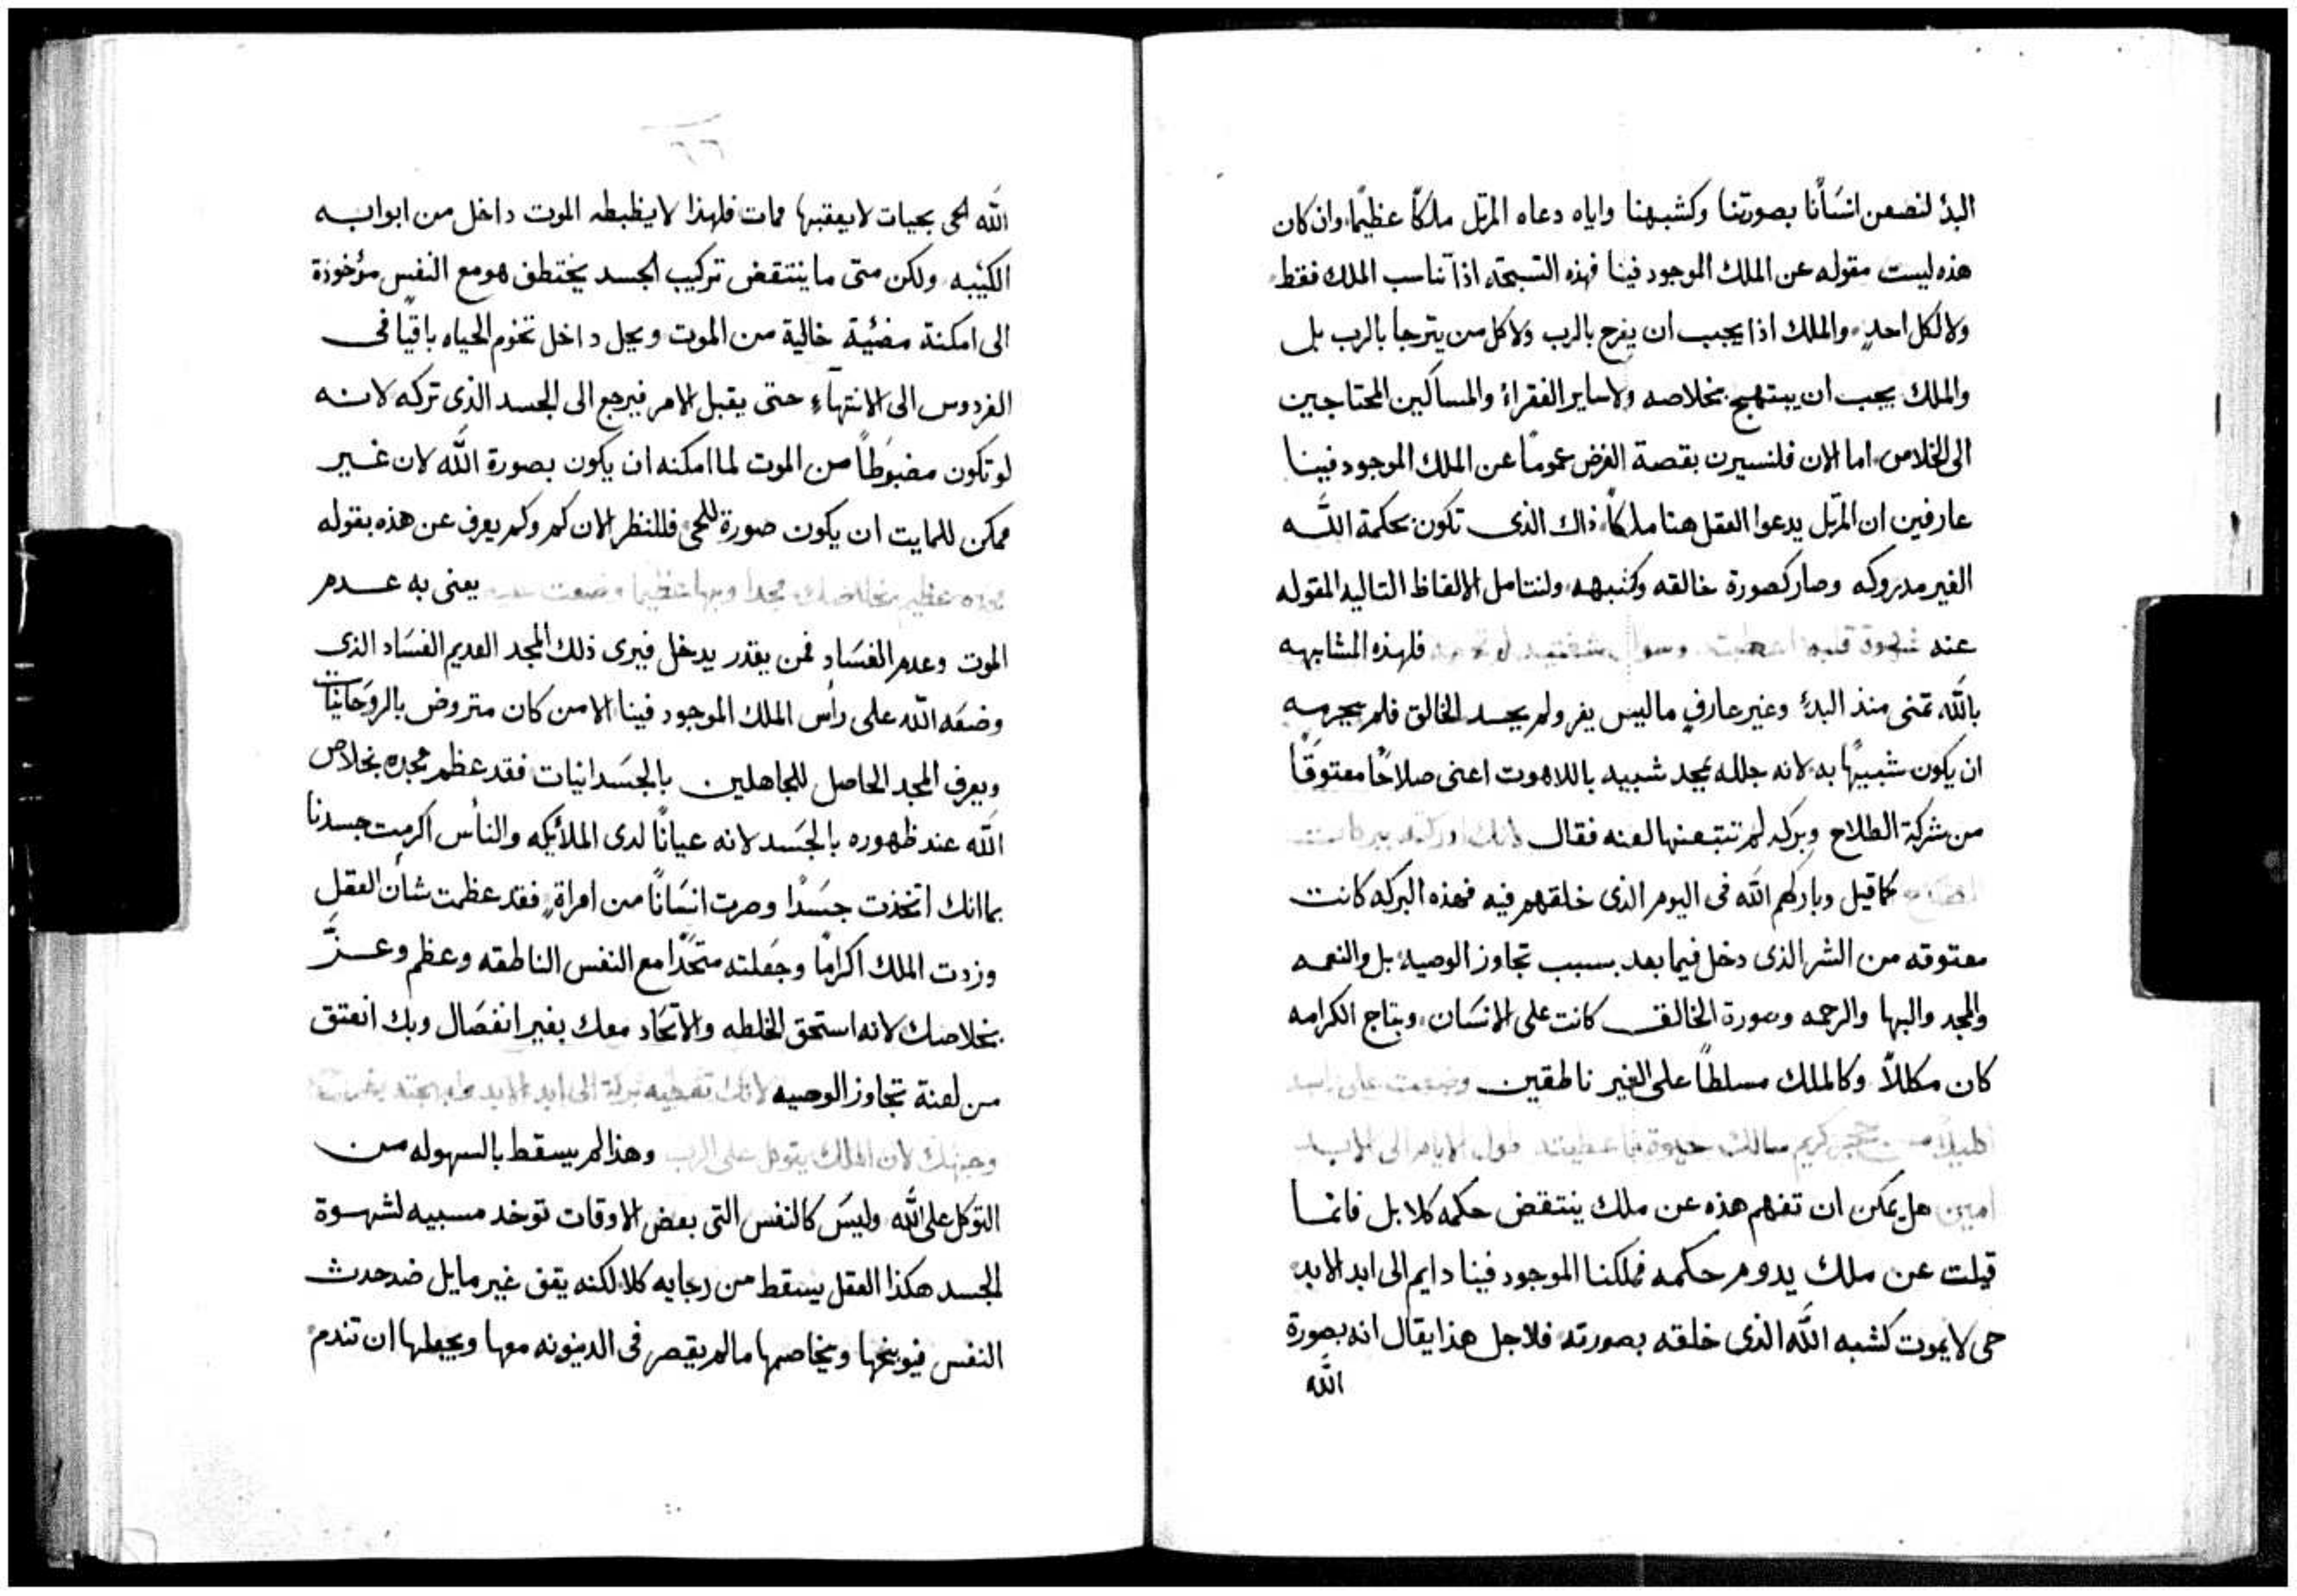 البدؤ لنصعن انسَانًا بصورتنا وكشبهنا واياه دعاه المرتل ملكًا عظيمًا وان كان
هذه ليست مقوله عن الملك الموجود فينا فهذه التسبحة اذًا تناسب الملك فقط
ولا لكل احدٍ والملك اذا يجب ان يفرح بالرب ولا كل من يترجا بالرب بل
والملك يجب ان يبتهج بخلاصه ولا ساير الفقراء والمساكين المحتاجين
الى الخلاص اما الان فلنسيرن بقصة الغرض عمومًا عن الملك الموجود فينا
عارفين ان المرتل يدعوا العقل هنا ملكًا ذاك الذى تكون بحكمة الله
الغير مدروكه وصار كصورة خالقه وكشبهه ولنتامل الالفاظ التاليه المقوله
عند شهوة قلبه اعطيت وسوال شفتيه لم فلهذه المشابهه
بالله تمنى منذ البدؤ وغير عارفٍ ماليس يفر ولم يحسد الخالق فلم يحرمه
ان يكون شبيهًا به لانه جلله بمجد شبيه باللاهوت اعنى صلاحًا معتوقًا
من شركة الطلاح وبركه لم تتبعنها لعنه فقال لانك ادركته ببركات
كما قيل وباركهم الله فى اليوم الذى خلقهم فيه فهذه البركه كانت
معتوقه من الشر الذى دخل فيما بعد بسبب تجاوز الوصيه بل والنعمه
والمجد والبها والرحمه وصورة الخالق كانت على الانسَان وبتاج الكرامه
كان مكللًا وكالملك مسلطًا على الغير ناطقين ووضعت على راسه
اكليلًا من حجر كريم سالك حيوة فاعطيته طول الايام الى الابد
امين هل يمكن ان تفهم هذه عن ملك ينتقض حكمه كلا بل فانما
قيلت عن ملك يدوم حكمه فملكنا الموجود فينا دايم الى ابد الابد
حى لا يموت كشبه الله الذى خلقه بصورته فلاجل هذا يقال انه بصورة
الله
٦٦
الله الحى بحيات لا يعقبها ممات فلهذا لا يظبطه الموت داخل من ابوابه
الكيئبه ولكن متى ما ينتقض تركيب الجسد يختطف هو مع النفس مؤخوذة
الى امكنة مضئية خالية من الموت ويحل داخل تخوم الحياه باقيًا فى
الفردوس الى الانتهآء حتى يقبل الامر فيرجع الى الجسد الذى تركه لانه
لو تكون مضبوطًا من الموت لما امكنه ان يكون بصورة الله لان غير
ممكن للمايت ان يكون صورة للحى فللنظر الان كم وكم يعرف عن هذه بقوله
مجده عظيم بخلاصك مجدا وبها عظيما وضعت عليه يعنى به عدم
الموت وعدم الفسَاد فمن يقدر يدخل فيرى ذلك المجد العديم الفسَاد الذى
وضعَه الله على رأس الملك الموجود فينا الا من كان متروض بالروحَانيَات
ويعرف المجد الحاصل للجاهلين بالجسَدانيات فقد عظم مجده بخلاص
الله عند ظهوره بالجسَد لانه عيانًا لدى الملائيكه والناس اكرمت جسدنا
بما انك اتخذت جسَدًا وصرت انسَانًا من امراةٍ فقد عظمت شأن العقل
وزدت الملك اكرامًا وجعَلته متحَدًا مع النفس الناطقه وعظم وعزَّ
بخلاصك لانه استحق الخلطه والاتحَاد معك بغير انفصَال وبك انعتق
من لعنة تجاوز الوصيه لانك تعطيه بركة الى ابد الابد وابهجته بفرح
وجهك لان الملك يتوكل على الرب وهذا لم يسقط بالسهوله من
التوكل على الله وليسَ كالنفس التى بعض الاوقات توخد مسبيه لشهوة
الجسد هكذا العقل يسقط من رجايه كلا لكنه يقف غير مايل ضد حدث
النفس فيوبخها ويخاصمها مالم يقيصر فى الدينونه معها ويجعلها ان تندم